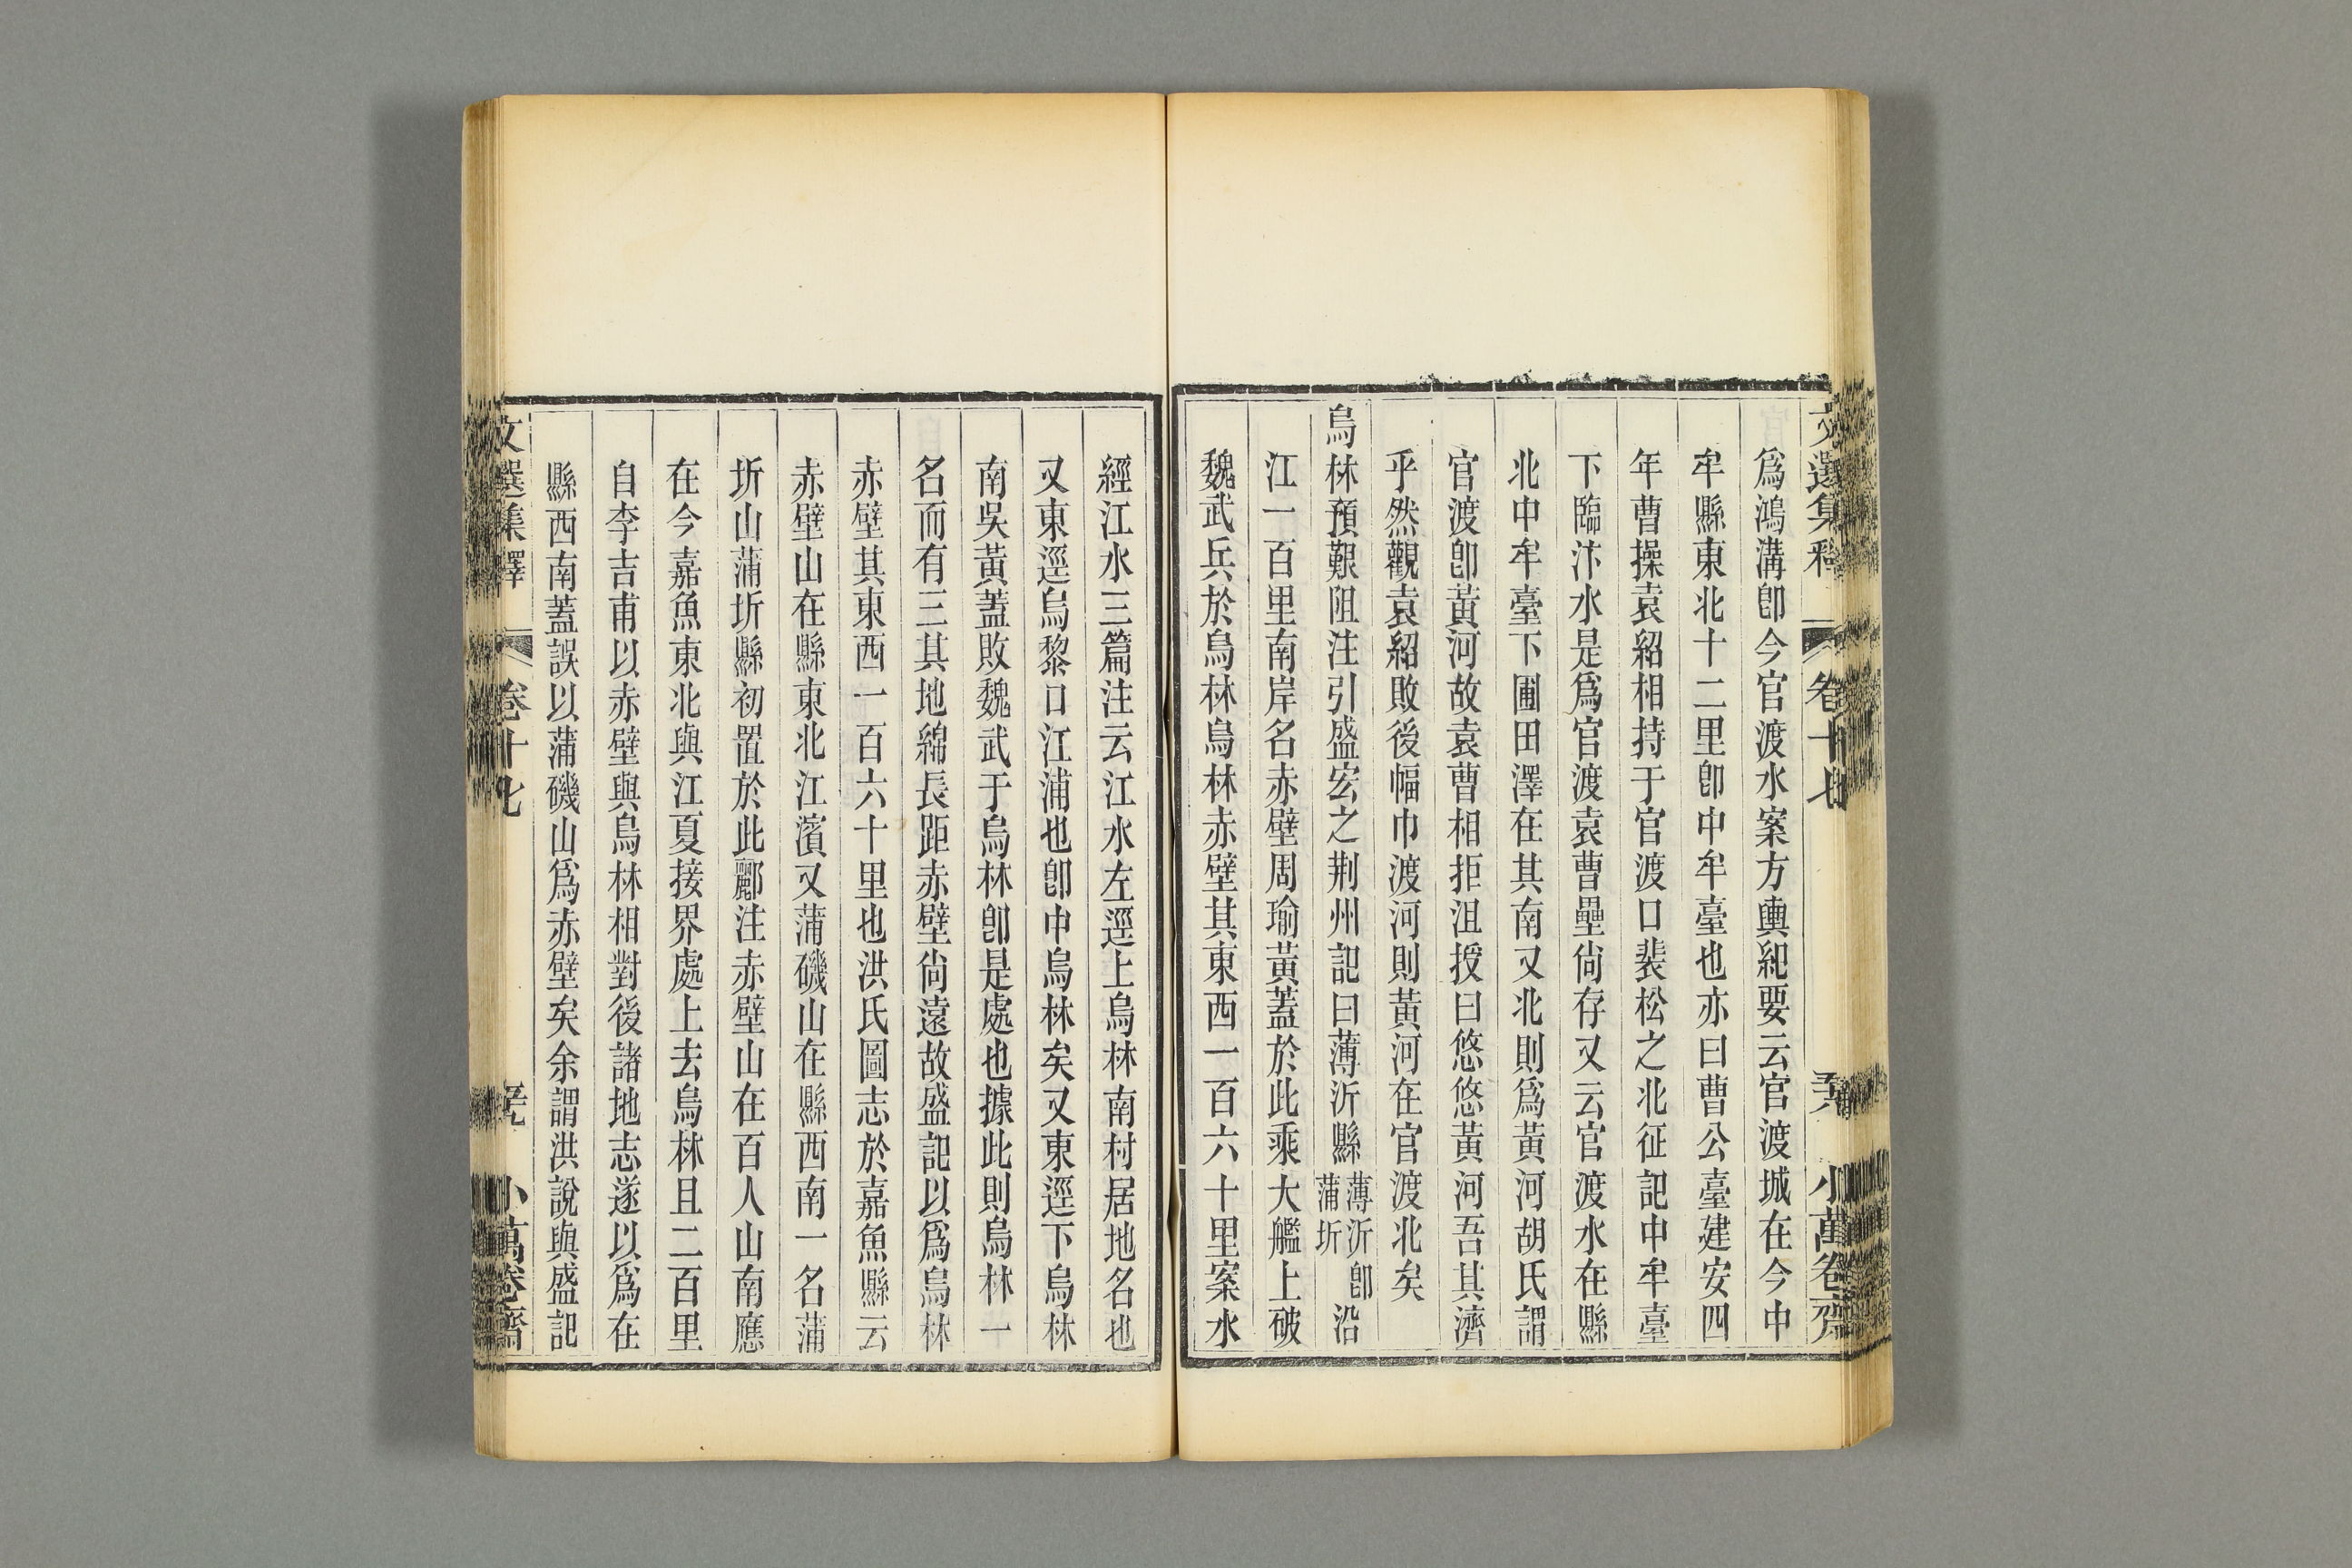 爲鴻溝卽今官渡水案方輿紀要云官渡城在今中
牟縣東北十二里卽中牟臺也亦曰曹公臺建安四
年曹操袁紹相持于官渡口裴松之北征記中牟臺
下臨汴水是爲官渡袁曹壘尙存又云官渡水在縣
北中牟臺下圃田澤在其南又北則爲黃河胡氏謂
官渡卽黃河故袁曹相拒沮授曰悠悠黃河吾其濟
乎然觀袁紹敗後幅巾渡河則黃河在官渡北矣
烏林預艱阻注引盛宏之荆州記曰薄沂縣薄沂卽蒲圻沿
江一百里南岸名赤壁周瑜黃蓋於此乘大艦上破
魏武兵於烏林烏林赤壁其東西一百六十里案水
經江水三篇注云江水左逕上烏林南村居地名也
又東逕烏黎口江浦也卽中烏林矣又東逕下烏林
南吳黃蓋敗魏武于烏林卽是處也據此則烏林一
名而有三其地綿長距赤壁尙遠故盛記以爲烏林
赤壁其東西一百六十里也洪氏圖志於嘉魚縣云
赤壁山在縣東北江濱又蒲磯山在縣西南一名蒲
圻山蒲圻縣初置於此酈注赤壁山在百人山南應
在今嘉魚東北與江夏接界處上去烏林且二百里
自李吉甫以赤壁與烏林相對後諸地志遂以爲在
縣西南蓋誤以蒲磯山爲赤壁矣余謂洪說與盛記
文選集釋
卷十七
小萬卷齋